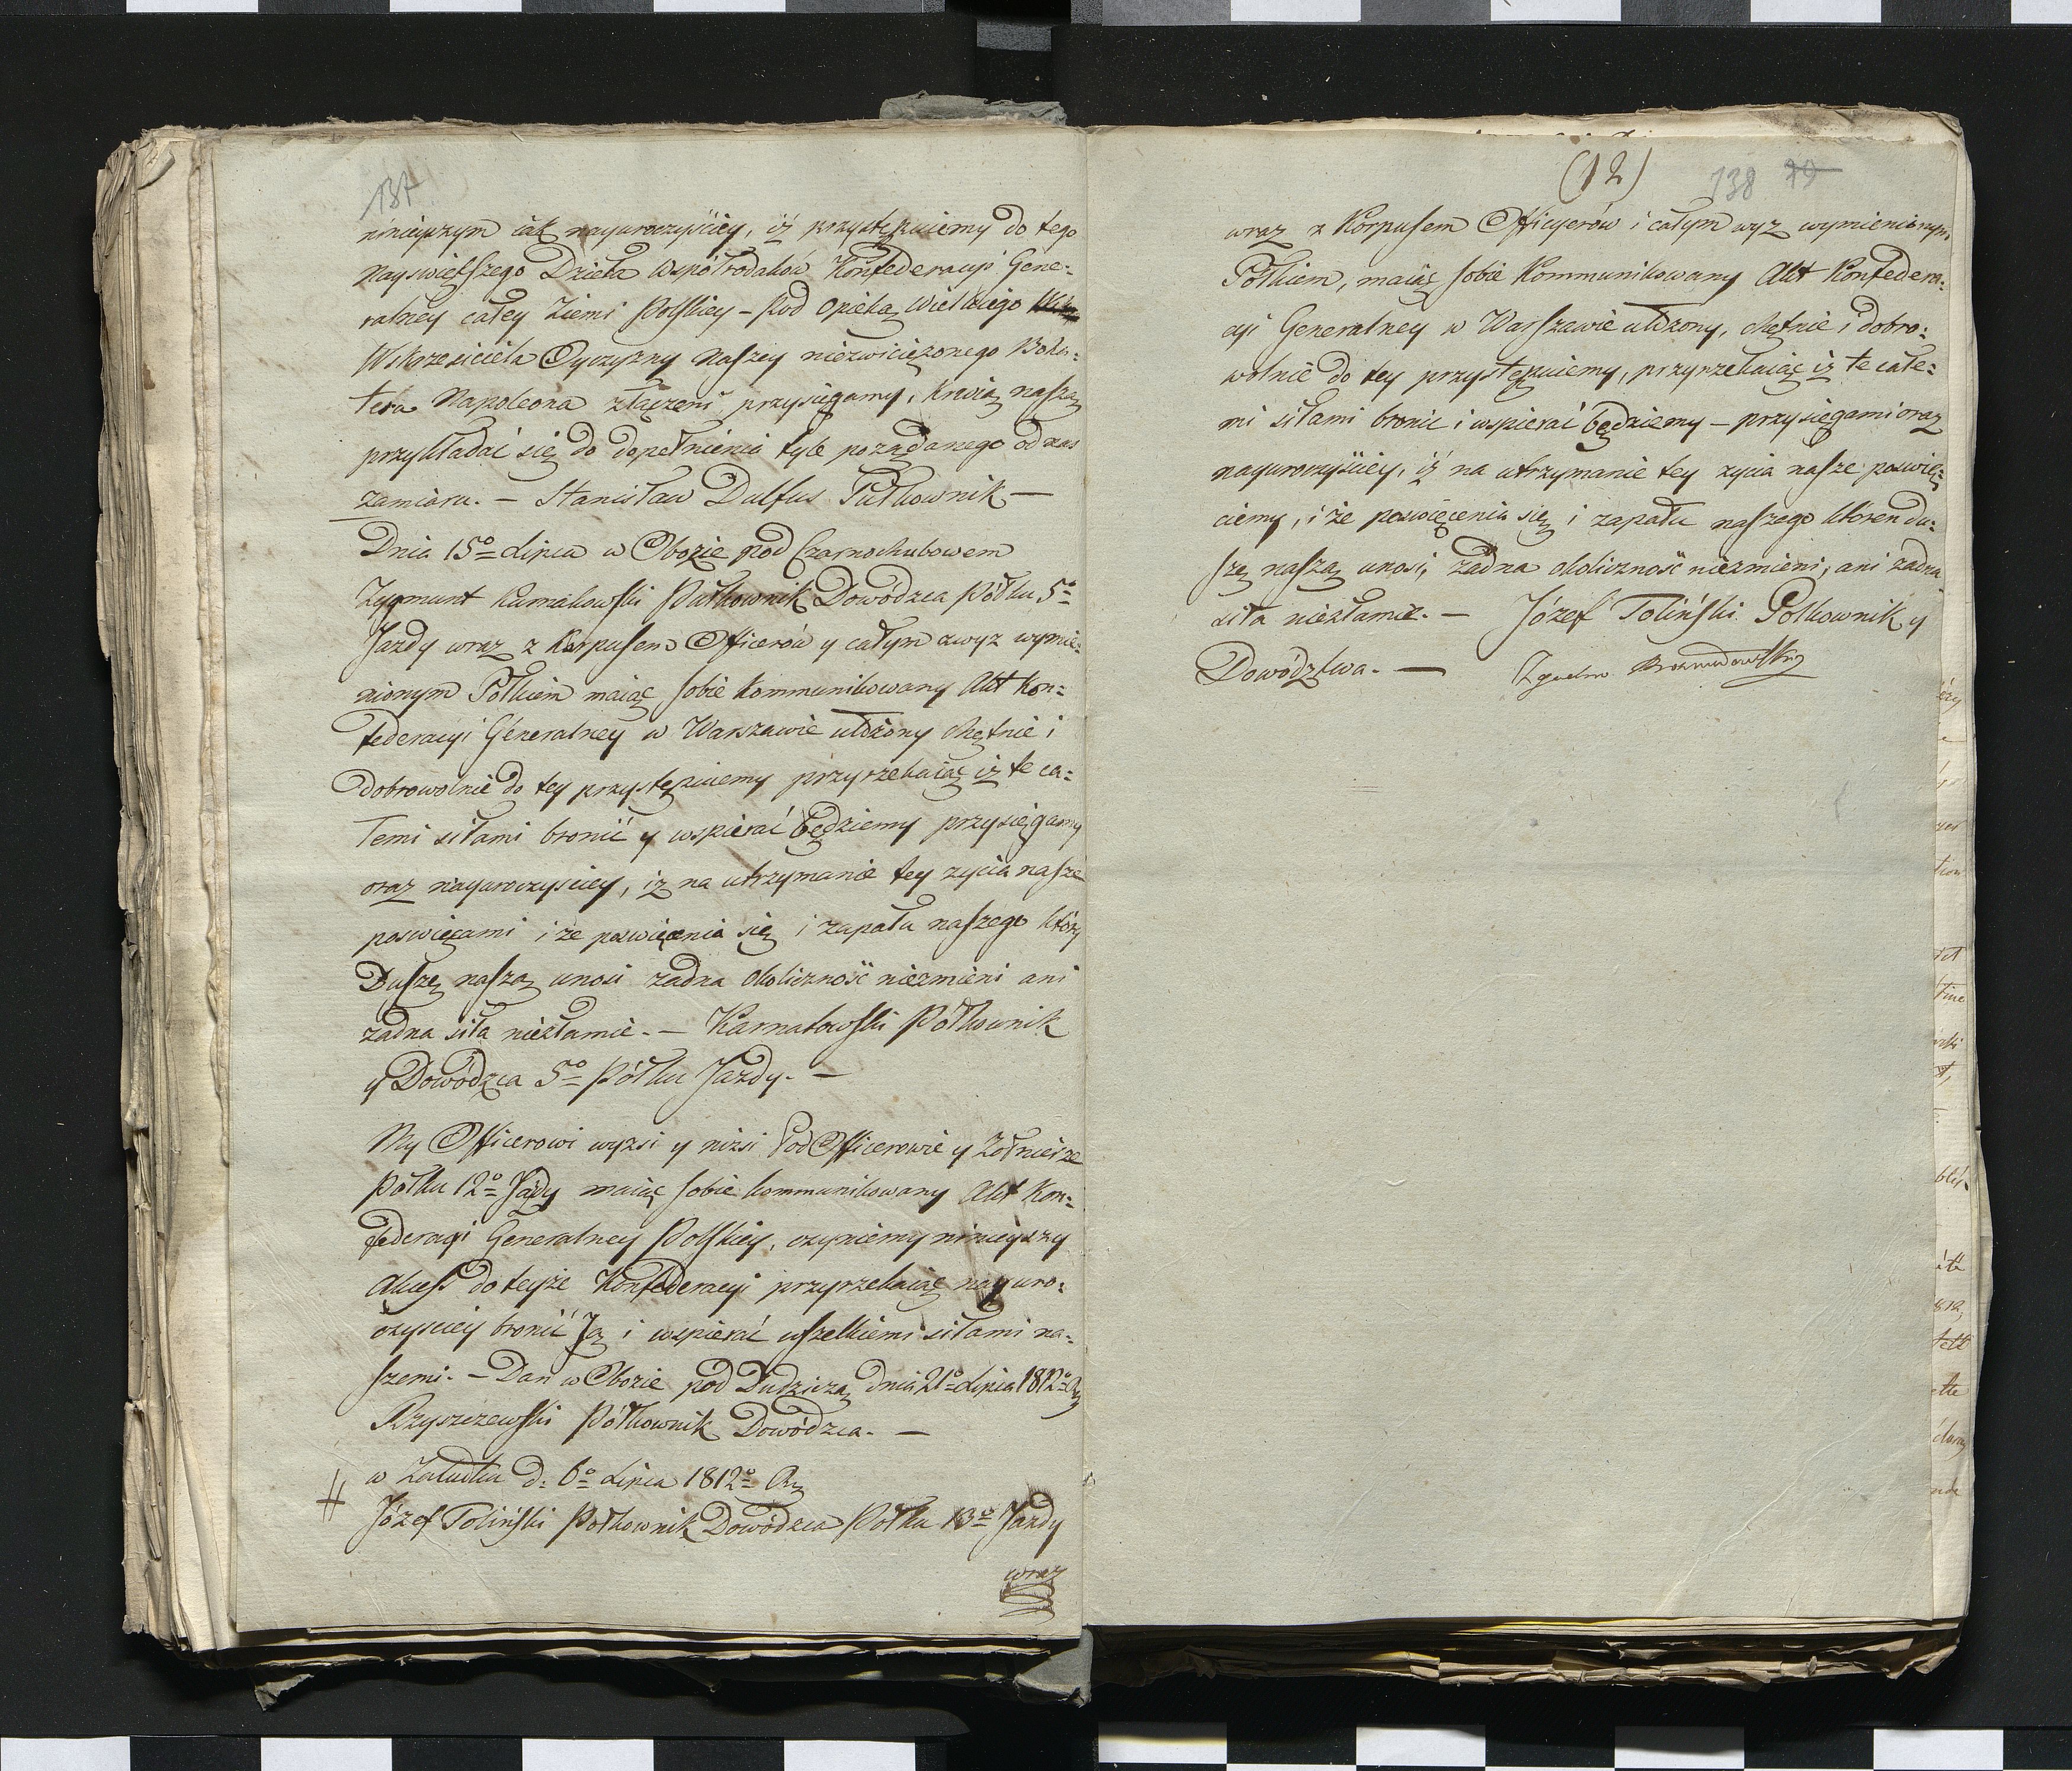 137
ninieyszym iak nayuroczyściey, iż przystępuiemy do tego
Nayswiętszego Dzieła Współrodaków Konfederacyi Gene=
ralney całey Ziemi Polskiey – Pod Opieką Wielkiego
Wskrzesiciela Oyczyzny Naszey niezwiciężonego Boha=
tera Napoleona złączeni przysięgamy, krwią naszą
przykładać się do dopełnienia tyle pożądanego od nas
zamiaru. – Stanisław Dulfus Pułkownik –
Dnia 15º Lipca w Obozie pod Czarnochubowem
Zygmunt Kurnatowski Pułkownik Dowódzca Półku 5º
Jazdy wraz z Korpusem Officerów y całym zwyz wymie=
nionym Połkiem maiąc sobie kommunikowany Akt Kon=
federacyi Generalney w Warszawie ułożony chętnie i
dobrowolnie do tey przystępuiemy przyrzekaiąc iż te ca=
łemi siłami bronić y wspierać będziemy przysięgamy
oraz nayuroczysciey, iz na utrzymanie tey zycia nasze
poswięcami i ze poswięcenia się i zapału naszego który
Duszę naszą unosi zadna okoliczność niezmieni ani
zadna siła niezłamie. – Kurnatowski Półkownik
y Dowódzca 5º Półku Jazdy. –
My Officerowi wyzsi y nizsi Pod Officerowie y Zołnierze
Półku 12º Jazdy maiąc sobie kommunikowany Akt Kon=
federacyi Generalney Polskiey, czyniemy ninieyszy
Akcess do teyże Konfederacyi przyrzekaiąc nayuro=
czysciey bronić Ją i wspierać wszelkiemi siłami na=
szemi. – Dan w Obozie pod Dudziczą dnia 21º Lipca 1812º R
Rzyszczewski Półkownik Dowódzca. –
w Załudku d. 6º Lipca 1812º R
# Józef Toliński Połkownik Dowódzca Połku 13º Jazdy
wraz
(12) 138 79
wraz z Korpusem Officyerów i całym wyz wymienionym
Połkiem, maiąc sobie Kommunikowany Akt Konfedera=
cyi Generalney w Warszawie ułożony, chętnie i dobro=
wolnie do tey przystępuiemy, przyrzekaiąc iż te całe=
mi siłami bronic i wspierać będziemy – przysięgami oraz
nayuroczyściey, iż na utrzymanie tey zycia nasze poswię=
ciemy, i że poswięcenia się i zapału naszego któren du=
szę naszą unosi, żadna okoliczność niezmieni, ani żadna
siła niezłamie. – Józef Toliński Połkownik y
Dowództwa. –